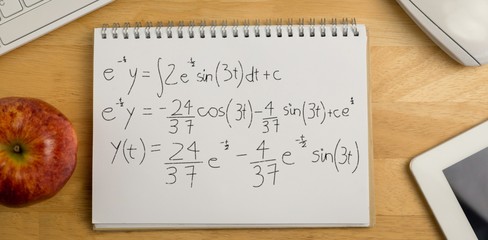 e^{-t/2} y = ∫2e^{-t/2} sin(3t)dt+c
e^{-t/2} y = -24/37 cos(3t) - 4/37 sin(3t)+ce^{t/2}
y(t) = 24/37 e^{-t/2} - 4/37 e^{-t/2} sin(3t)